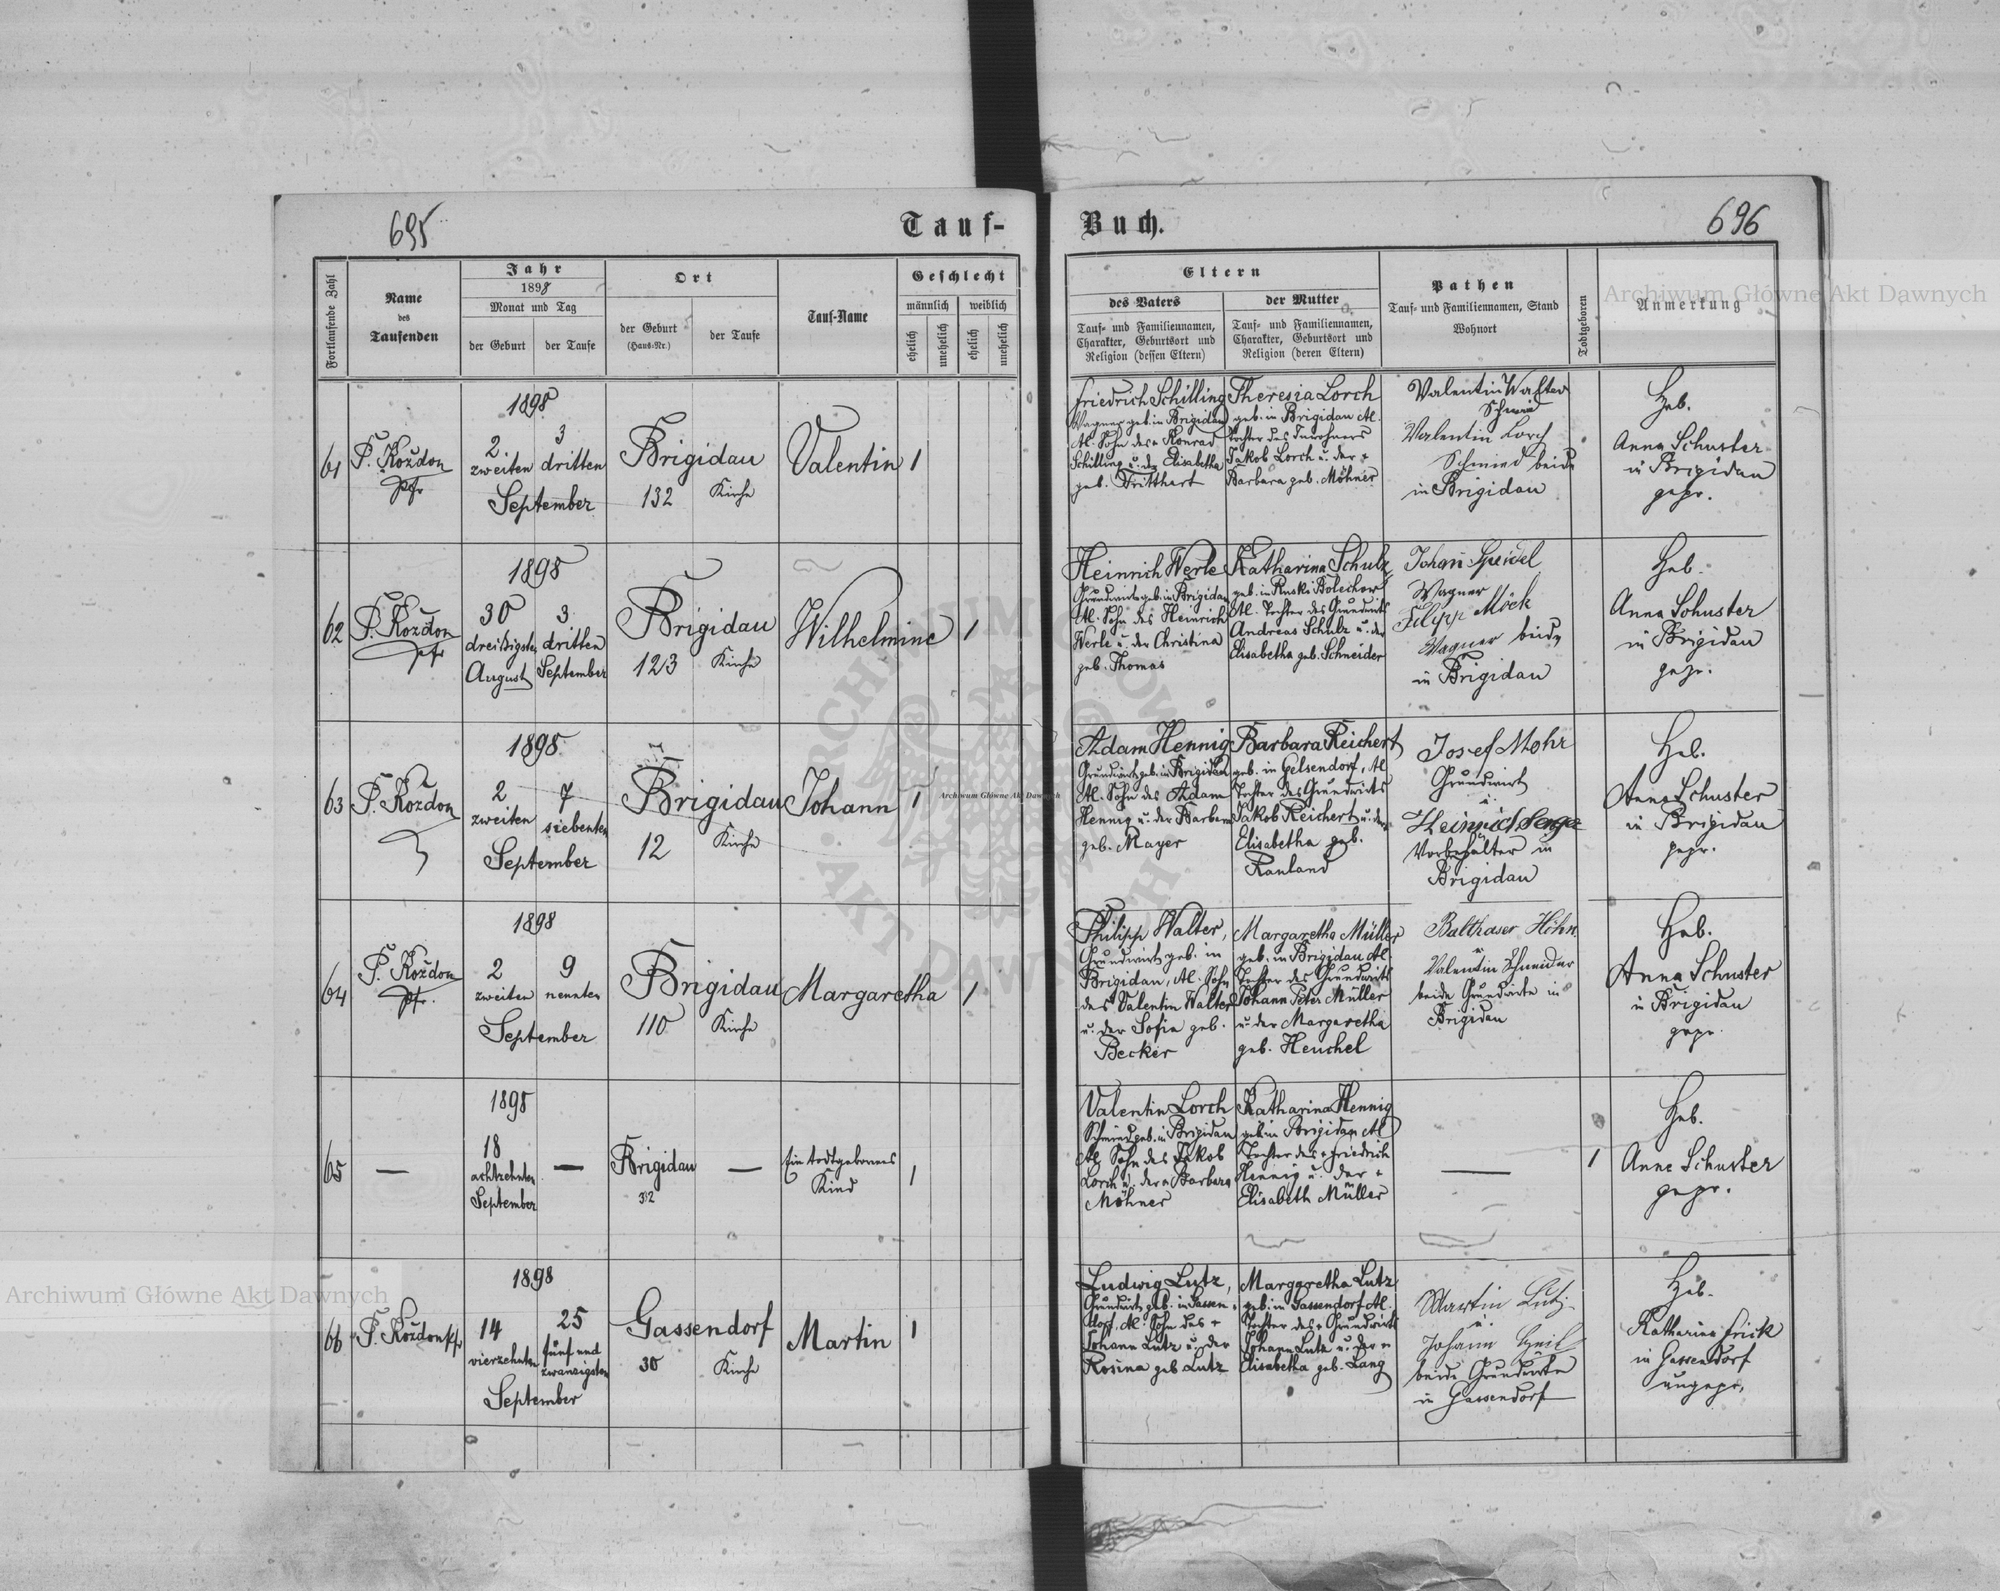 695
Tauf-
Buch.
696
Fortlaufende Zahl
Name
des
Taufenden
Jahr
1898
Monat und Tag
der Geburt
der Taufe
Ort
der Geburt
(Haus-Nr.)
der Taufe
Tauf-Name
Geschlecht
männlich
weiblich
ehelich
unehelich
ehelich
unehelich
Eltern
des Vaters
Tauf- und Familiennamen,
Charakter, Geburtsort und
Religion (dessen Eltern)
der Mutter
Tauf- und Familiennamen,
Charakter, Geburtsort und
Religion (deren Eltern)
Pathen
Tauf- und Familiennamen, Stand
Wohnort
Todtgeboren
Anmerkung
61
P. Kożdon
Pfr
1898
2
zweiten
3
dritten
September
Brigidau
132
Kirche
Valentin
1
Friedrich Schilling
Wagner geb. in Brigidau
Al. Sohn des + Konrad
Schilling u. der Elisabetha
geb. Tritthart
Theresia Lorch
geb. in Brigidau Al.
Tochter des Inwohners
Jakob Lorch u. der +
Barbara geb. Möhner
Valentin Walter
Schmied
Valentin Lorch
Schmied beide
in Brigidau
Heb.
Anna Schuster
in Brigidau
gepr.
62
P. Kożdon
pfr
1898
30
dreißigsten
August
3
dritten
September
Brigidau
123
Kirche
Wilhelmine
1
Heinrich Werle
Grundwirt geb. in Brigidau
Al. Sohn des Heinrich
Werle u. der Christina
geb. Thomas
Katharina Schulz
geb. in Ruski Bolechow
Al. Tochter des Grundwirts
Andreas Schulz u. der
Elisabetha geb. Schneider
Johan Speidel
Wagner
Filipp Möck
Wagner beide
in Brigidau
Heb.
Anna Schuster
in Brigidau
gepr.
63
P. Kożdon
1898
2
zweiten
7
siebenten
September
Brigidau
12
Kirche
Johann
1
Adam Hennig
Grundwirt geb. in Brigidau
Al. Sohn des Adam
Hennig u. der Barbara
geb. Mayer
Barbara Reichert
geb. in Gelsendorf, Al
Tochter des Grundwirts
Jakob Reichert u. der
Elisabetha geb.
Rauland
Josef Mohr
Grundwirt
u.
Heinrich
Vorbehalter in
Brigidau
Heb.
Anna Schuster
in Brigidau
gepr.
64
P. Kożdon
Pfr.
1898
2
zweiten
9
neunten
September
Brigidau
110
Kirche
Margaretha
1
Philipp Walter,
Grundwirt geb. in
Brigidau, Al. Sohn
des Valentin Walter
u. der Sofia geb.
Becker
Margaretha Müller
geb. in Brigidau Al.
Tochter des Grundwirts
Johann Peter Müller
u. der Margaretha
geb. Henchel
Balthaser Höhn
u
Valentin Schneider
beide Grundwirte in
Brigidau
Heb.
Anna Schuster
in Brigidau
gepr.
65
—
1898
18
achtzehnten
September
—
Brigidau
32
—
Ein todtgebornes
Kind
1
Valentin Lorch
Schmied geb. in Brigidau
Al. Sohn des Jakob
Lorch u. der + Barbara
Möhner
Katharina Hennig
geb. in Brigidau Al
Tochter des + Friedrich
Hennig u. der +
Elisabeth Müller
—
1
Heb.
Anna Schuster
gepr.
66
P. Kożdon Pfr
1898
14
vierzehnten
25
fünf und
zwanzigsten
September
Gassendorf
30
Kirche
Martin
1
Ludwig Lutz,
Grundwirt geb. in Gassen-
dorf. Al. Sohn des +
Johann Lutz u. der
Rosina geb Lutz
Margaretha Lutz
geb. in Gassendorf Al.
Tochter des + Grundwirts
Johann Lutz u. der +
Elisabetha geb. Lang
Martin Lutz
u.
Johann
beide Grundwirte
in Gassendorf
Heb.
Katharina Frick
in Gassendorf
ungepr.
Archiwum Główne Akt Dawnych
Archiwum Główne Akt Dawnych
Archiwum Główne Akt Dawnych